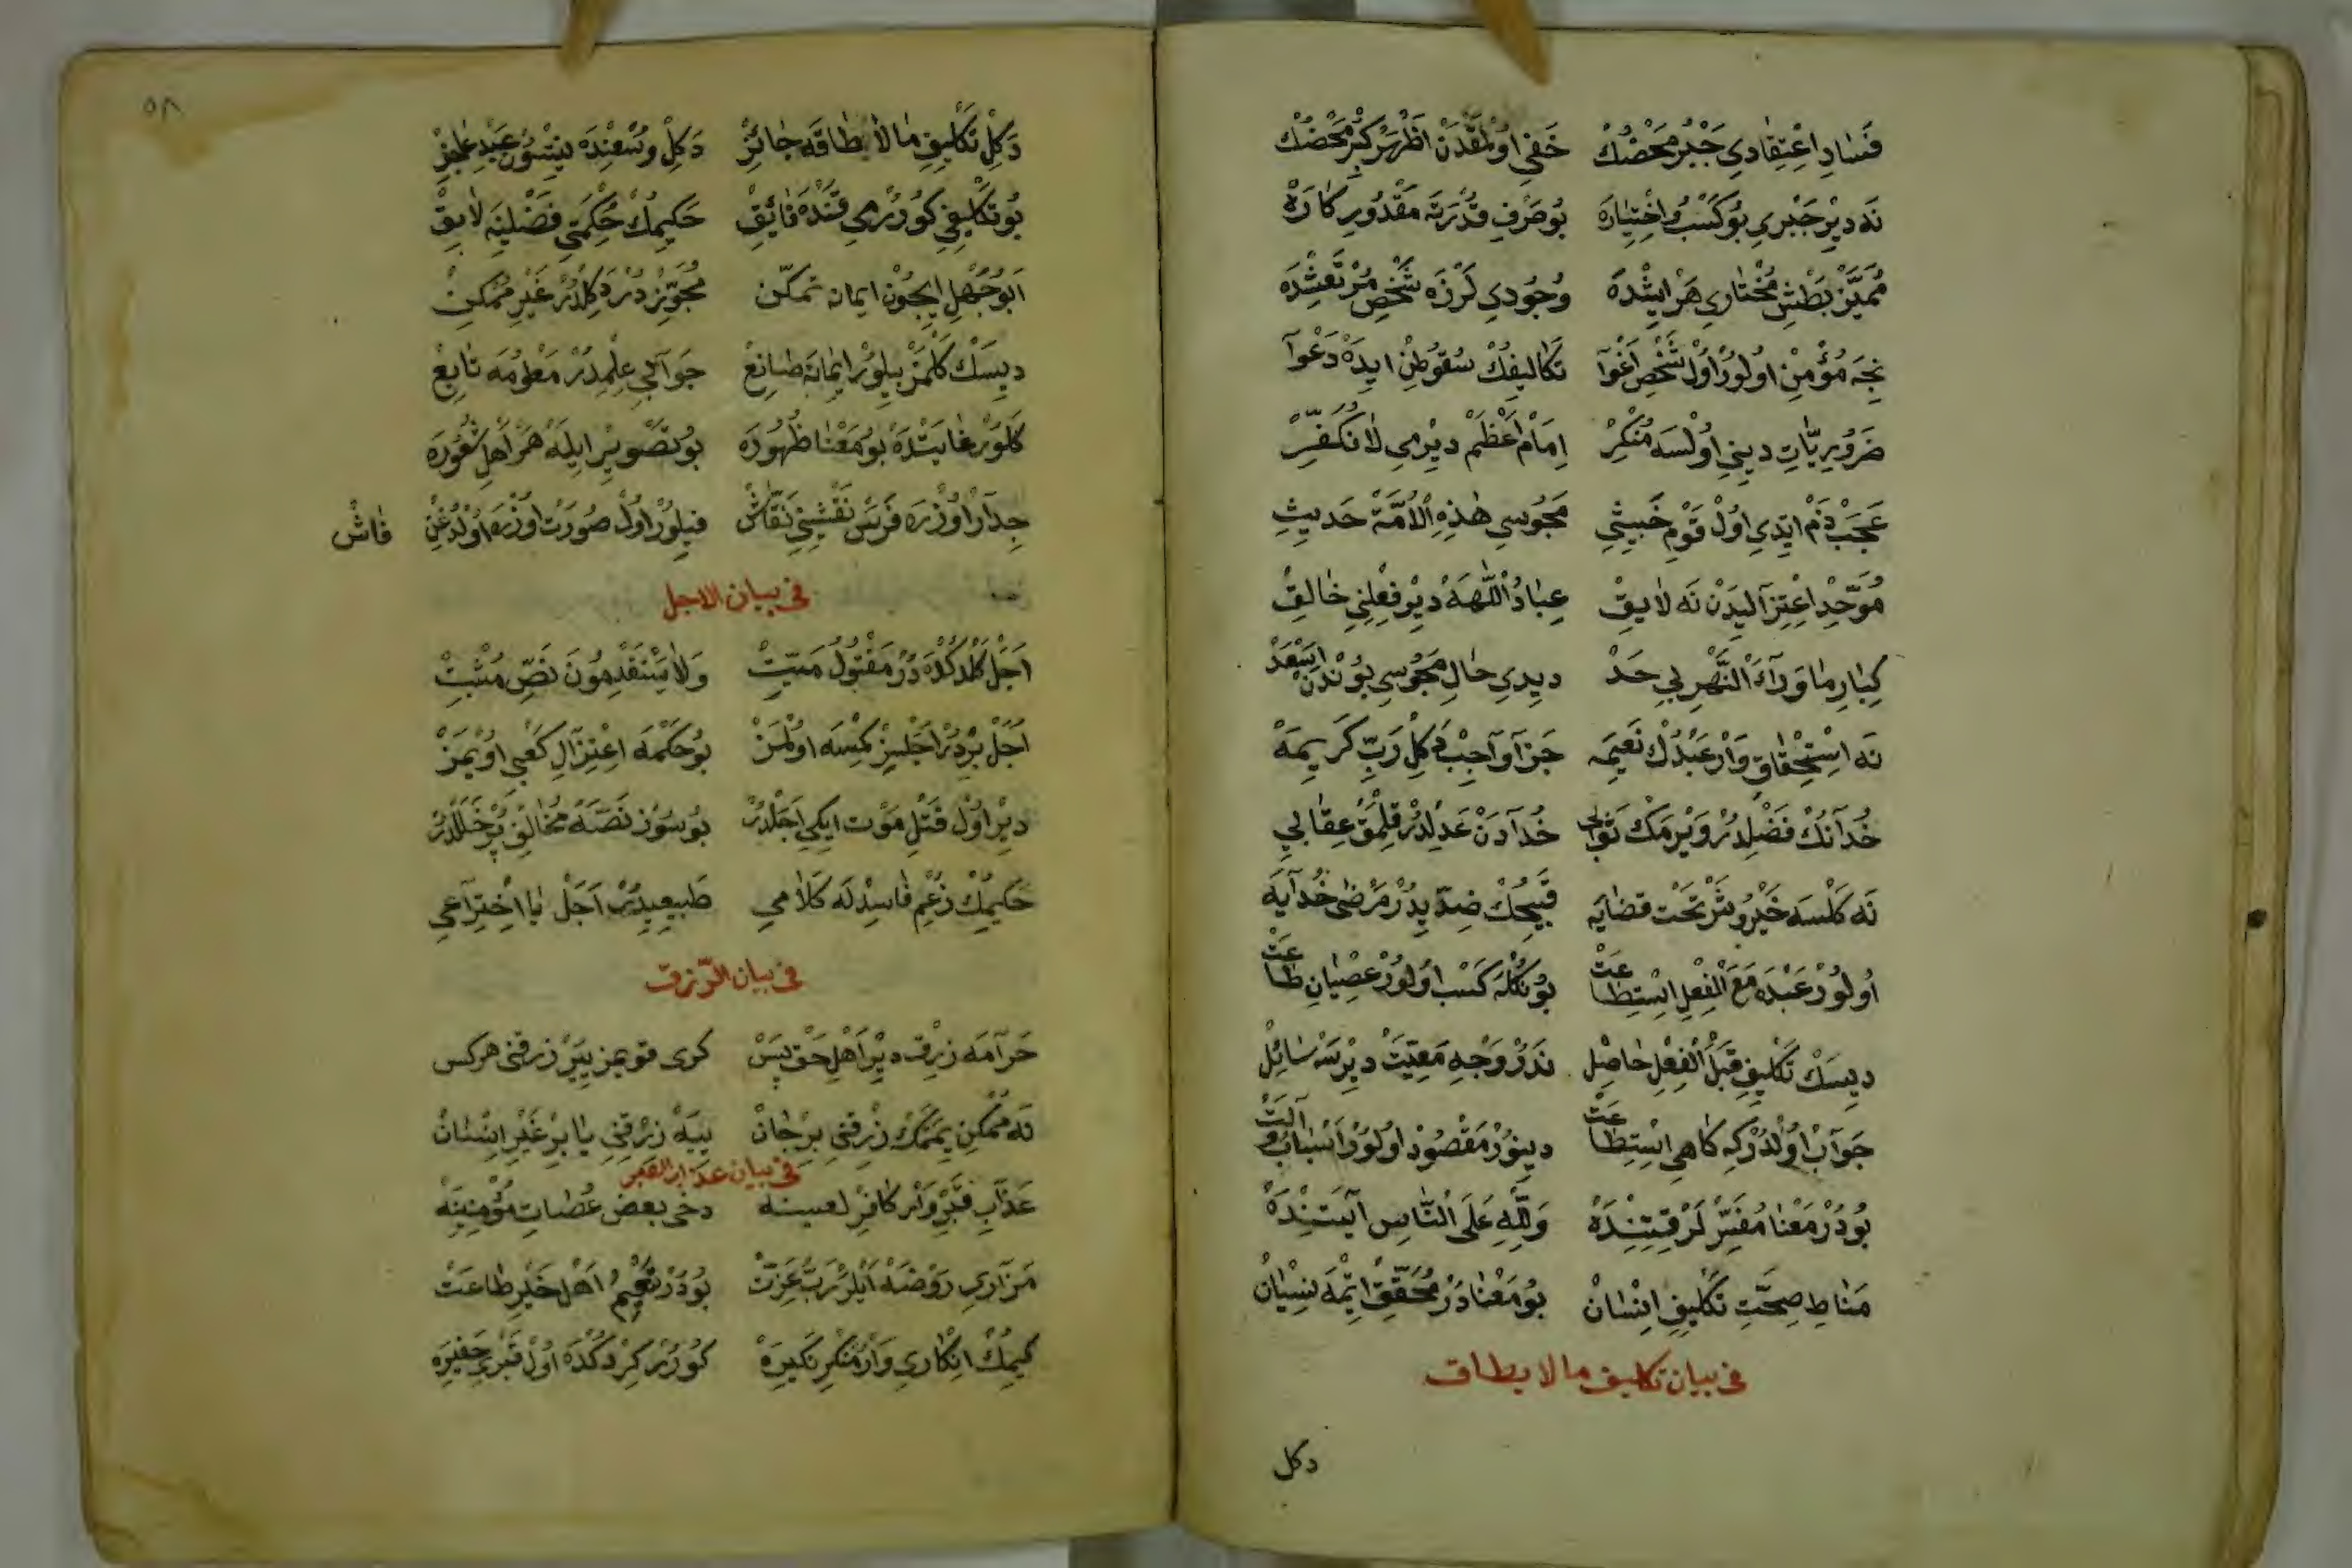 فَسَادِ اِعْتِقَادِي جَبْرِ مَحْضُكْ خَفِي اوُلْمَقْدَنْ اَظْهَرْ كِبْرِ مَحْضُكْ
نَه دِيرْ جَبْرِي بُو كَسْبُ و اِخْتِيَارَه بُو صَرْفِ قُدْرَتَه مَقْدُورِ كَارَهْ
مُمَيَّزْ بَطْشِ مُخْتَارِي هَرْ اِيشْدَهْ وُجُودِي لَرْزَه شَخْصِ مُرْتَعِشْدَه
نِجَه مُؤْمِنْ اوُلوُرْ اوُلْ شَخْصِ اَغْوَا تَكَالِيفُكْ سُقُوطِنْ ايدَهْ دَعْوَا
ضَرُورِيَّاتِ دِينِي اوُلْسَه مُنْكِرْ اِمَامِ اَعْظَمْ دِيرْمِي لَا نُكَفِّرْ
عَجَبْ ذَمْ ايتْدِي اوُلْ قَوْمِ خَبِيثِي مَجُوسِي هٰذِهِ الْاُمَّةْ حَدِيثِ
مُوَحِّدْ اِعْتِزَالِيدَنْ نَه لَايِقْ عِبَادُ اللّٰهَه دِيرْ فِعْلِنِي خَالِقْ
كِبَارِ مَا وَرَاءَ النَّهْرِ بِي حَدْ دِيدِي حَالِ مَجُوسِي بُونْدَنْ اَسْعَدْ
نَه اِسْتِحْقَاقِ وَارْ عَبْدُكْ نَعِيمَه جَزَا وَاجِبْ دَكِلْ رَبِّ كَرِيمَهْ
خُدَانُكْ فَضْلِدُرْ وَيرْمَكْ ثَوَابِي خُدَادَنْ عَدْلِدُرْ قِلْمَقْ عِقَابِي
نَه كَلْسَه خَيْرُ و شَرْ تَحْتِ قَضَايَه قَبِيحُكْ ضِدِّيدُرْ مَرْضِي خُدَايَه
اوُلوُرْ عَبْدَه مَعَ الْفِعْلِ اِسْتِطَاعَتْ بُونُكْلَه كَسْبِ اوُلوُرْ عِصْيَانِ طَاعَتْ
دِيسَكْ تَكْلِيفِ قَبْلَ الْفِعْلِ حَاصِلْ نَدُرْ وَجْهِ مَعِيَّتْ دِيرْسَه سَائِلْ
جَوَابْ اوُلْدُرْكِه كَاهِي اِسْتِطَاعَتْ دِينُورْ مَقْصُودْ اوُلوُرْ اَسْبَابُ و آلَتْ
بُودُرْ مَعْنَا مُفَسِّرْلَرْ قَتِنْدَهْ وَلِلّٰهِ عَلَى النَّاسِ آيَتِنْدَهْ
مَنَاطِ صِحَّتِ تَكْلِيفِ اِنْسَانْ بُو مَعْنَادُرْ مُحَقِّقْ ايتْمَه نِسْيَانْ
فى بيان تكليف ما لا يطاق
دكل
٥٨
دَكِلْ تَكْلِيفِ مَا لَا يُطَاقَه جَائِزْ دَكِلْ وُسْعِنْدَه نيتْسُونْ عَبْدِ عَاجِزْ
بُو تَكْلِيفِي كُورُرْمِي قَنْدَه فَائِقْ حَكِيمُكْ حِكْمَتِي فَضْلِينَه لَايِقْ
اَبُو جَهْلِ ايچُونْ ايمانه تمكّن مُجَوِّزْدُرْ دَكِلْدُرْ غَيْرِ مُمْكِنْ
دِيسَكْ كَلْمَزْ بِيلُورْ ايمَانَه صَانِعْ جَوَابِي عِلْمِدُرْ مَعْلُومَه تَابِعْ
كَلُورْ غَايَتْدَه بُو مَعْنَا ظُهُورَه بُو تَصْوِيرْ ايلَه هَرْ اَهْلِ شُعُورَه
جِدَارْ اوُزْرَه فَرَسْ نَقْشِينِي نَقَّاشْ قِيلُورْ اوُلْ صُورَتْ اوُزْرَه اوُلْدُغِنْ فَاشْ
فى بيان الاجل
اَجَلْ كَلْدُكْدَه دُرْ مَقْتُولْ مَيِّتْ وَلَا يَسْتَقْدِمُونَ نَصِّ مُثْبِتْ
اَجَلْ بِرْدُرْ اَجَلْسِزْ كِمْسَه اوُلْمَزْ بُو حُكْمَه اِعْتِزَالِ كَعْبِي اوُيْمَزْ
دِيرْ اوُلْ قَتْلِ مَوْت ايكِي اَجَلْدُرْ بُو سُوزْ نَصَّه مُخَالِفْ پُرْ خَلَلْدُرْ
حَكِيمِكْ زَعْمِ فَاسِدْلَه كَلَامِي طَبِيعِيدُرْ اَجَلْ يَا اِخْتِرَاعِي
فى بيان الرّزق
حَرَامَه رِزْق دِيرْ اَهْلِ حَقْ پَسْ كرى قويمز يِيَرْ رزقنى هركس
نَه مُمْكِنْ يِيمَمَكْ رِزْقِنِي بِرْ جَانْ يِيَه رِزْقِنِي يَا بِرْ غَيْرِ اِنْسَانْ
فى بيان عذاب القبر
عَذَابِ قَبْرِ وَارْ كَافِرْ لعينه دخى بعض عُصَاتِ مُؤْمِنِينَه
مَزَارِي رَوْضَه ايلَرْ رَبِّ عِزَّتْ بُودُرْ تَنْعِيمُ اَهْلِ خَيْرِ طَاعَتْ
كِيمِكْ اِنْكَارِي وَارْ مُنْكَرِ نَكِيرَهْ كُورُرْ كِرْدُكْدَه اوُلْ قَبْرِ حَقِيرَه